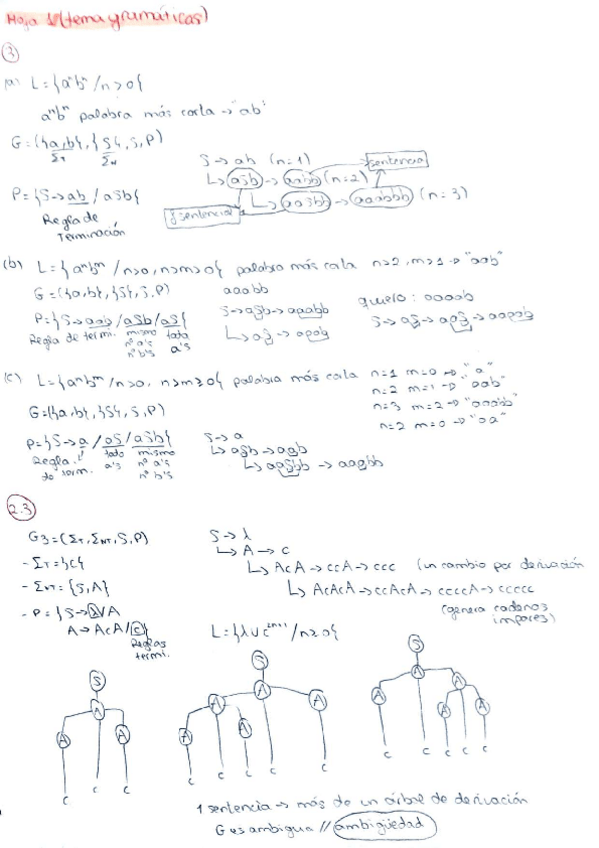 Hoja 1 (tema gramáticas)
3
(a) L = {aⁿbⁿ / n>0}
aⁿbⁿ palabra más corta → "ab"
G = ({a,b}, {S}, S, P)
Σт Σɴ
S → ab (n=1)
↳ aSb → aabb (n=2) sentencia
↳ aaSbb → aaabbb (n=3)
P = {S → ab / aSb}
Regla de terminación
(b) L = {aⁿbᵐ / n>0, n>m>0} palabra más corta n=2, m=1 → "aab"
G = ({a,b}, {S}, S, P) aaabb
P = {S → aab / aSb / aS}
Regla de termi. mismo nº a's nº b's tata a's
S → aSb → aaabb
↳ aS → aaab
quiero: aaaab
S → aS → aaS → aaaab
(c) L = {aⁿbᵐ / n>0, n>m≥0} palabra más corta n=1 m=0 → "a"
n=2 m=1 → "aab"
n=3 m=2 → "aaabb"
n=2 m=0 → "aa"
G = ({a,b}, {S}, S, P)
P = {S → a / aS / aSb}
Regla de term. tata a's mismo nº a's nº b's
S → a
↳ aSb → aab
↳ aaSbb → aaabb
2.3
G3 = (Σт, Σɴт, S, P)
- Σт = {c}
- Σɴт = {S, A}
- P = {S → λ/A
A → AcA / c}
Reglas termi.
S → λ
↳ A → c
↳ AcA → ccA → ccc (un cambio por derivación
↳ AcAcA → ccAcA → ccccA → ccccc
(genera cadenas impares)
L = {λ ∪ c²ⁿ⁺¹ / n≥0}
S S S
A A A
A A A A A A
A A A A
c c c c c c c c c c c c c
1 sentencia → más de un árbol de derivación
G es ambigua // ambigüedad